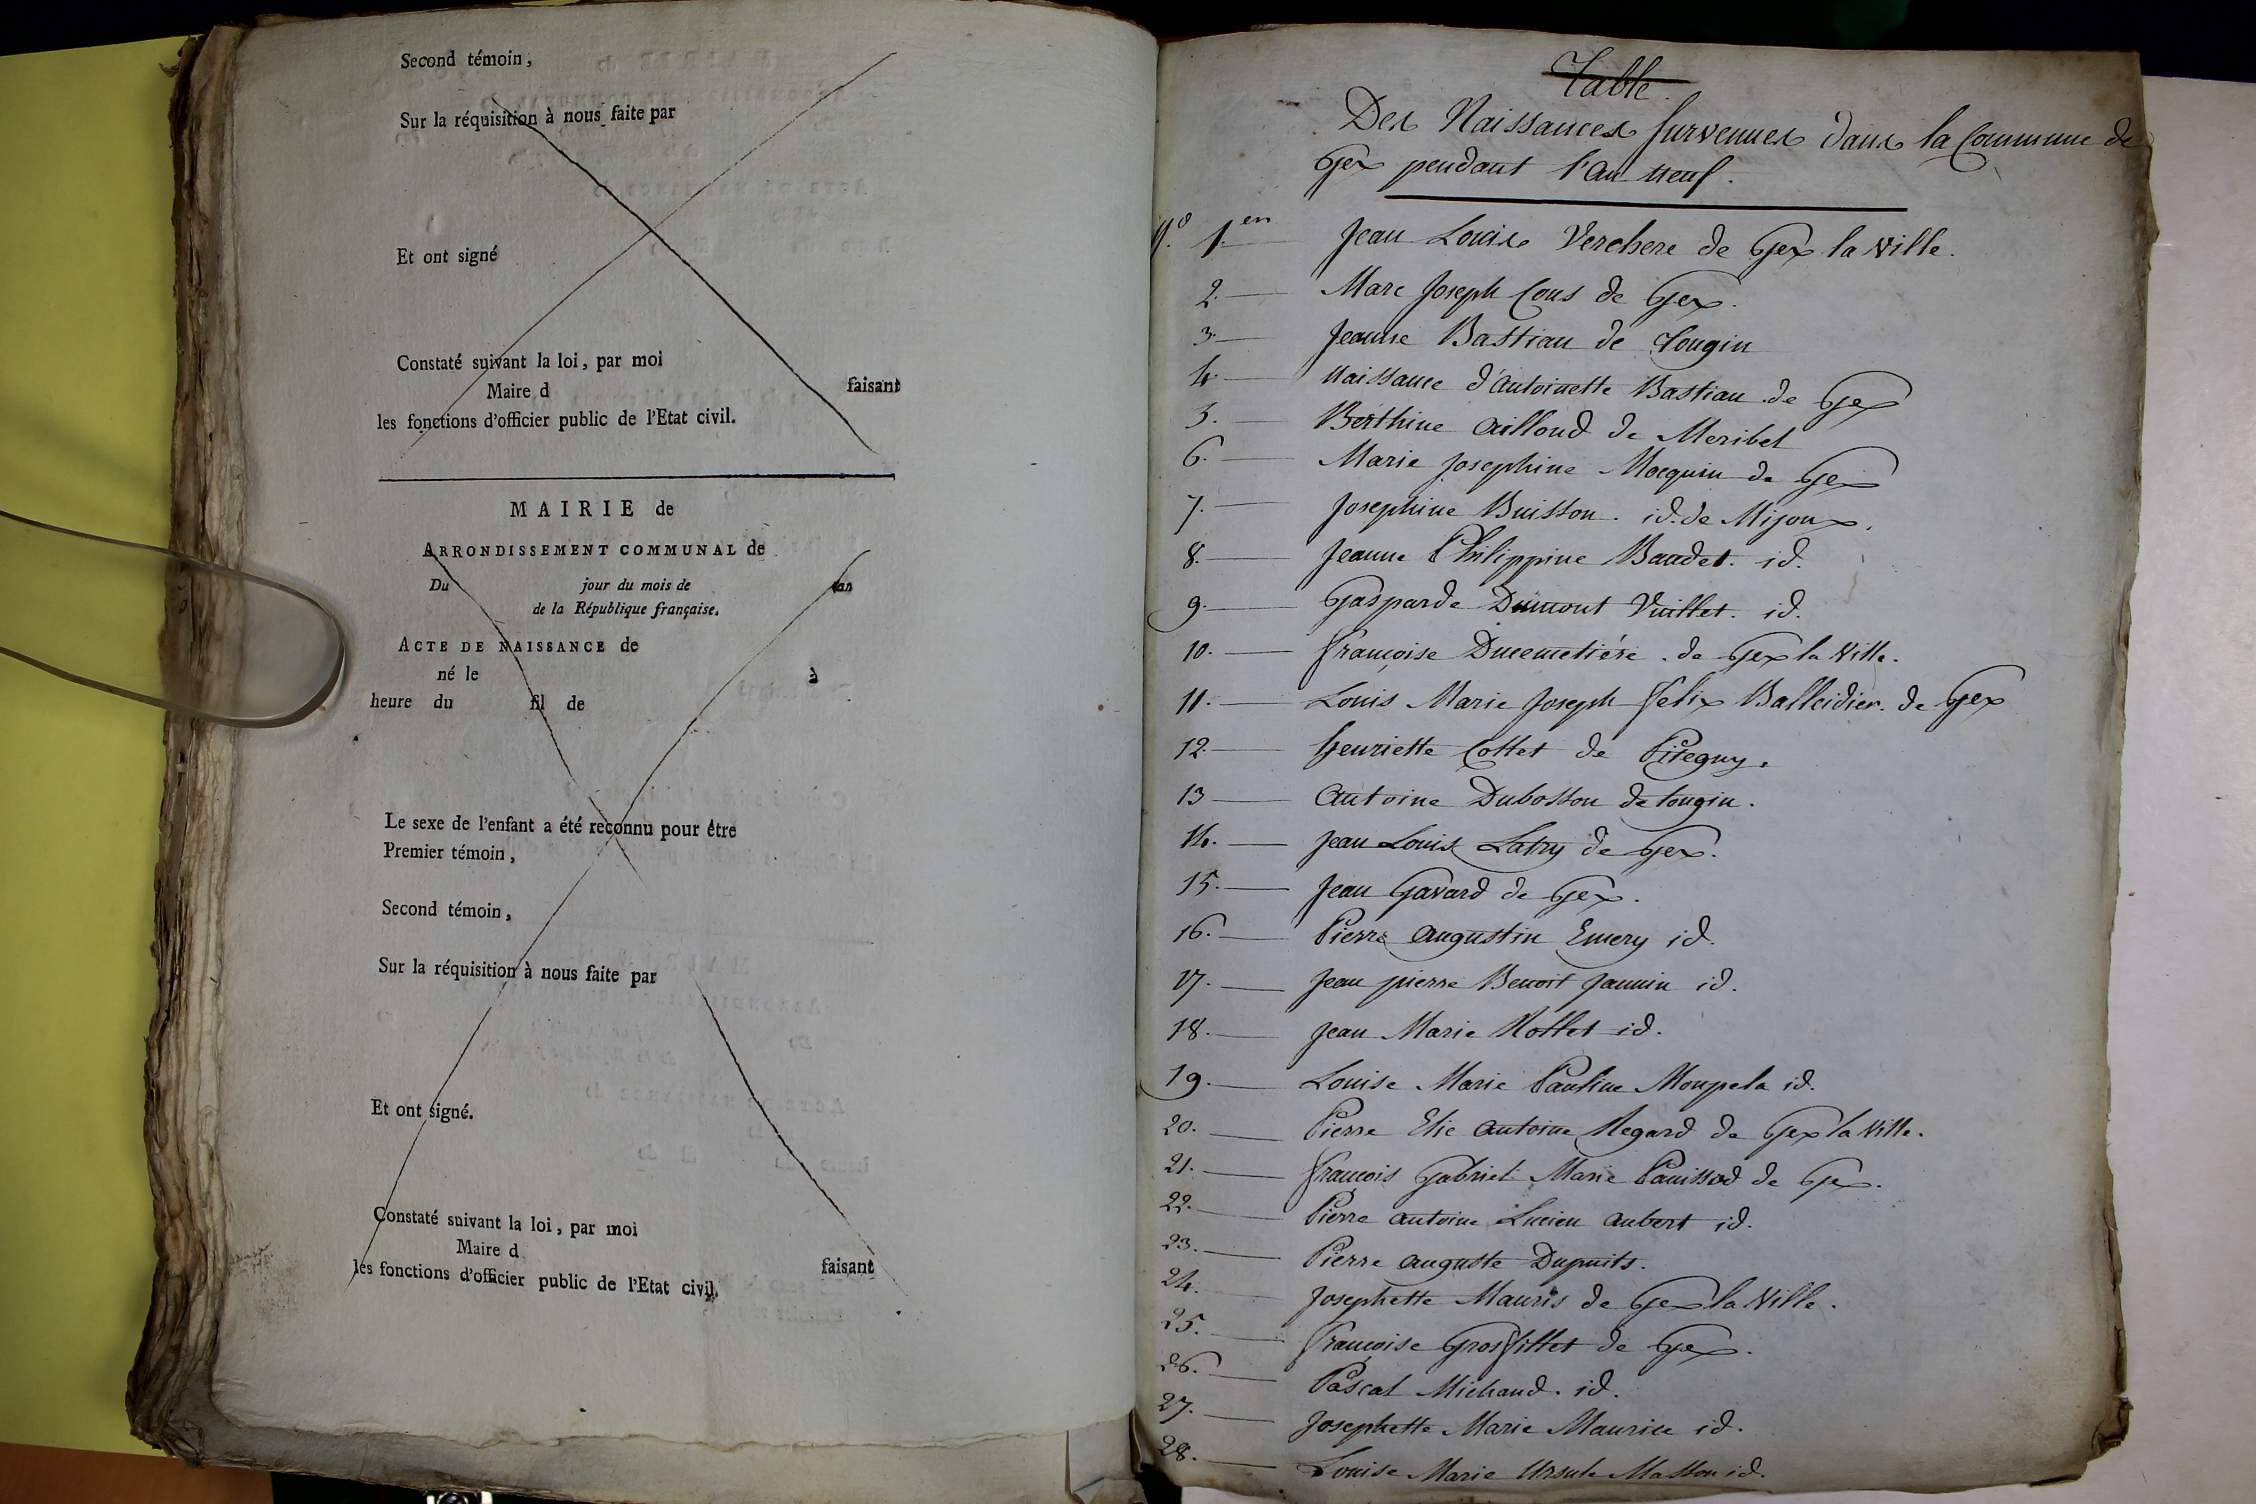 Second témoin,
Sur la réquisition à nous faite par
Et ont signé
Constaté suivant la loi, par moi
Maire d faisant
les fonctions d'officier public de l'Etat civil.
MAIRIE de
ARRONDISSEMENT COMMUNAL de
Du jour du mois de l'an
de la République française.
ACTE DE NAISSANCE de
né le à
heure du fil de
Le sexe de l'enfant a été reconnu pour être
Premier témoin,
Second témoin,
Sur la réquisition à nous faite par
Et ont signé.
Constaté suivant la loi, par moi
Maire d faisant
les fonctions d'officier public de l'Etat civil.
Table.
Des Naissances survenues dans la Commune de
Gex pendant l'an neuf.
N.º 1.er Jean Louis Verchere de Gex la Ville.
2. Marc Joseph Cons de Gex.
3. Jeanne Bastian de Tougin
4. naissance d'antoinette Bastian de Gex
5. Berthine ailloud de Meribel
6. Marie Josephine Mocquin de Gex
7. Josephine Buisson. id. de Mijoux.
8. Jeanne Philippine Baudet. id.
9. Gasparde Dumont Vuillet. id.
10. françoise Ducemetiére de Gex la Ville.
11. Louis Marie Joseph felix Balleidier de Gex
12. henriette Cottet de Pitegny.
13 antoine Dubosson de tougin.
14. Jean Louis Latry de Gex.
15. Jean Gavard de Gex.
16. Pierre augustin Emery id.
17. Jean pierre Benoit Jannin id.
18. Jean Marie Rottet id.
19. Louise Marie Pauline Monpela id.
20. Pierre Elie antoine Regard de Gex la Ville.
21. françois Gabriel Marie Panissod de Gex.
22. Pierre antoine Lucien aubert id.
23. Pierre auguste Dupuits.
24. Josephette Mauris de Gex la Ville.
25. françoise Grosfillet de Gex.
26. Pascal Michaud. id.
27. Josephette Marie Maurice id.
28. Louise Marie Ursule Masson id.